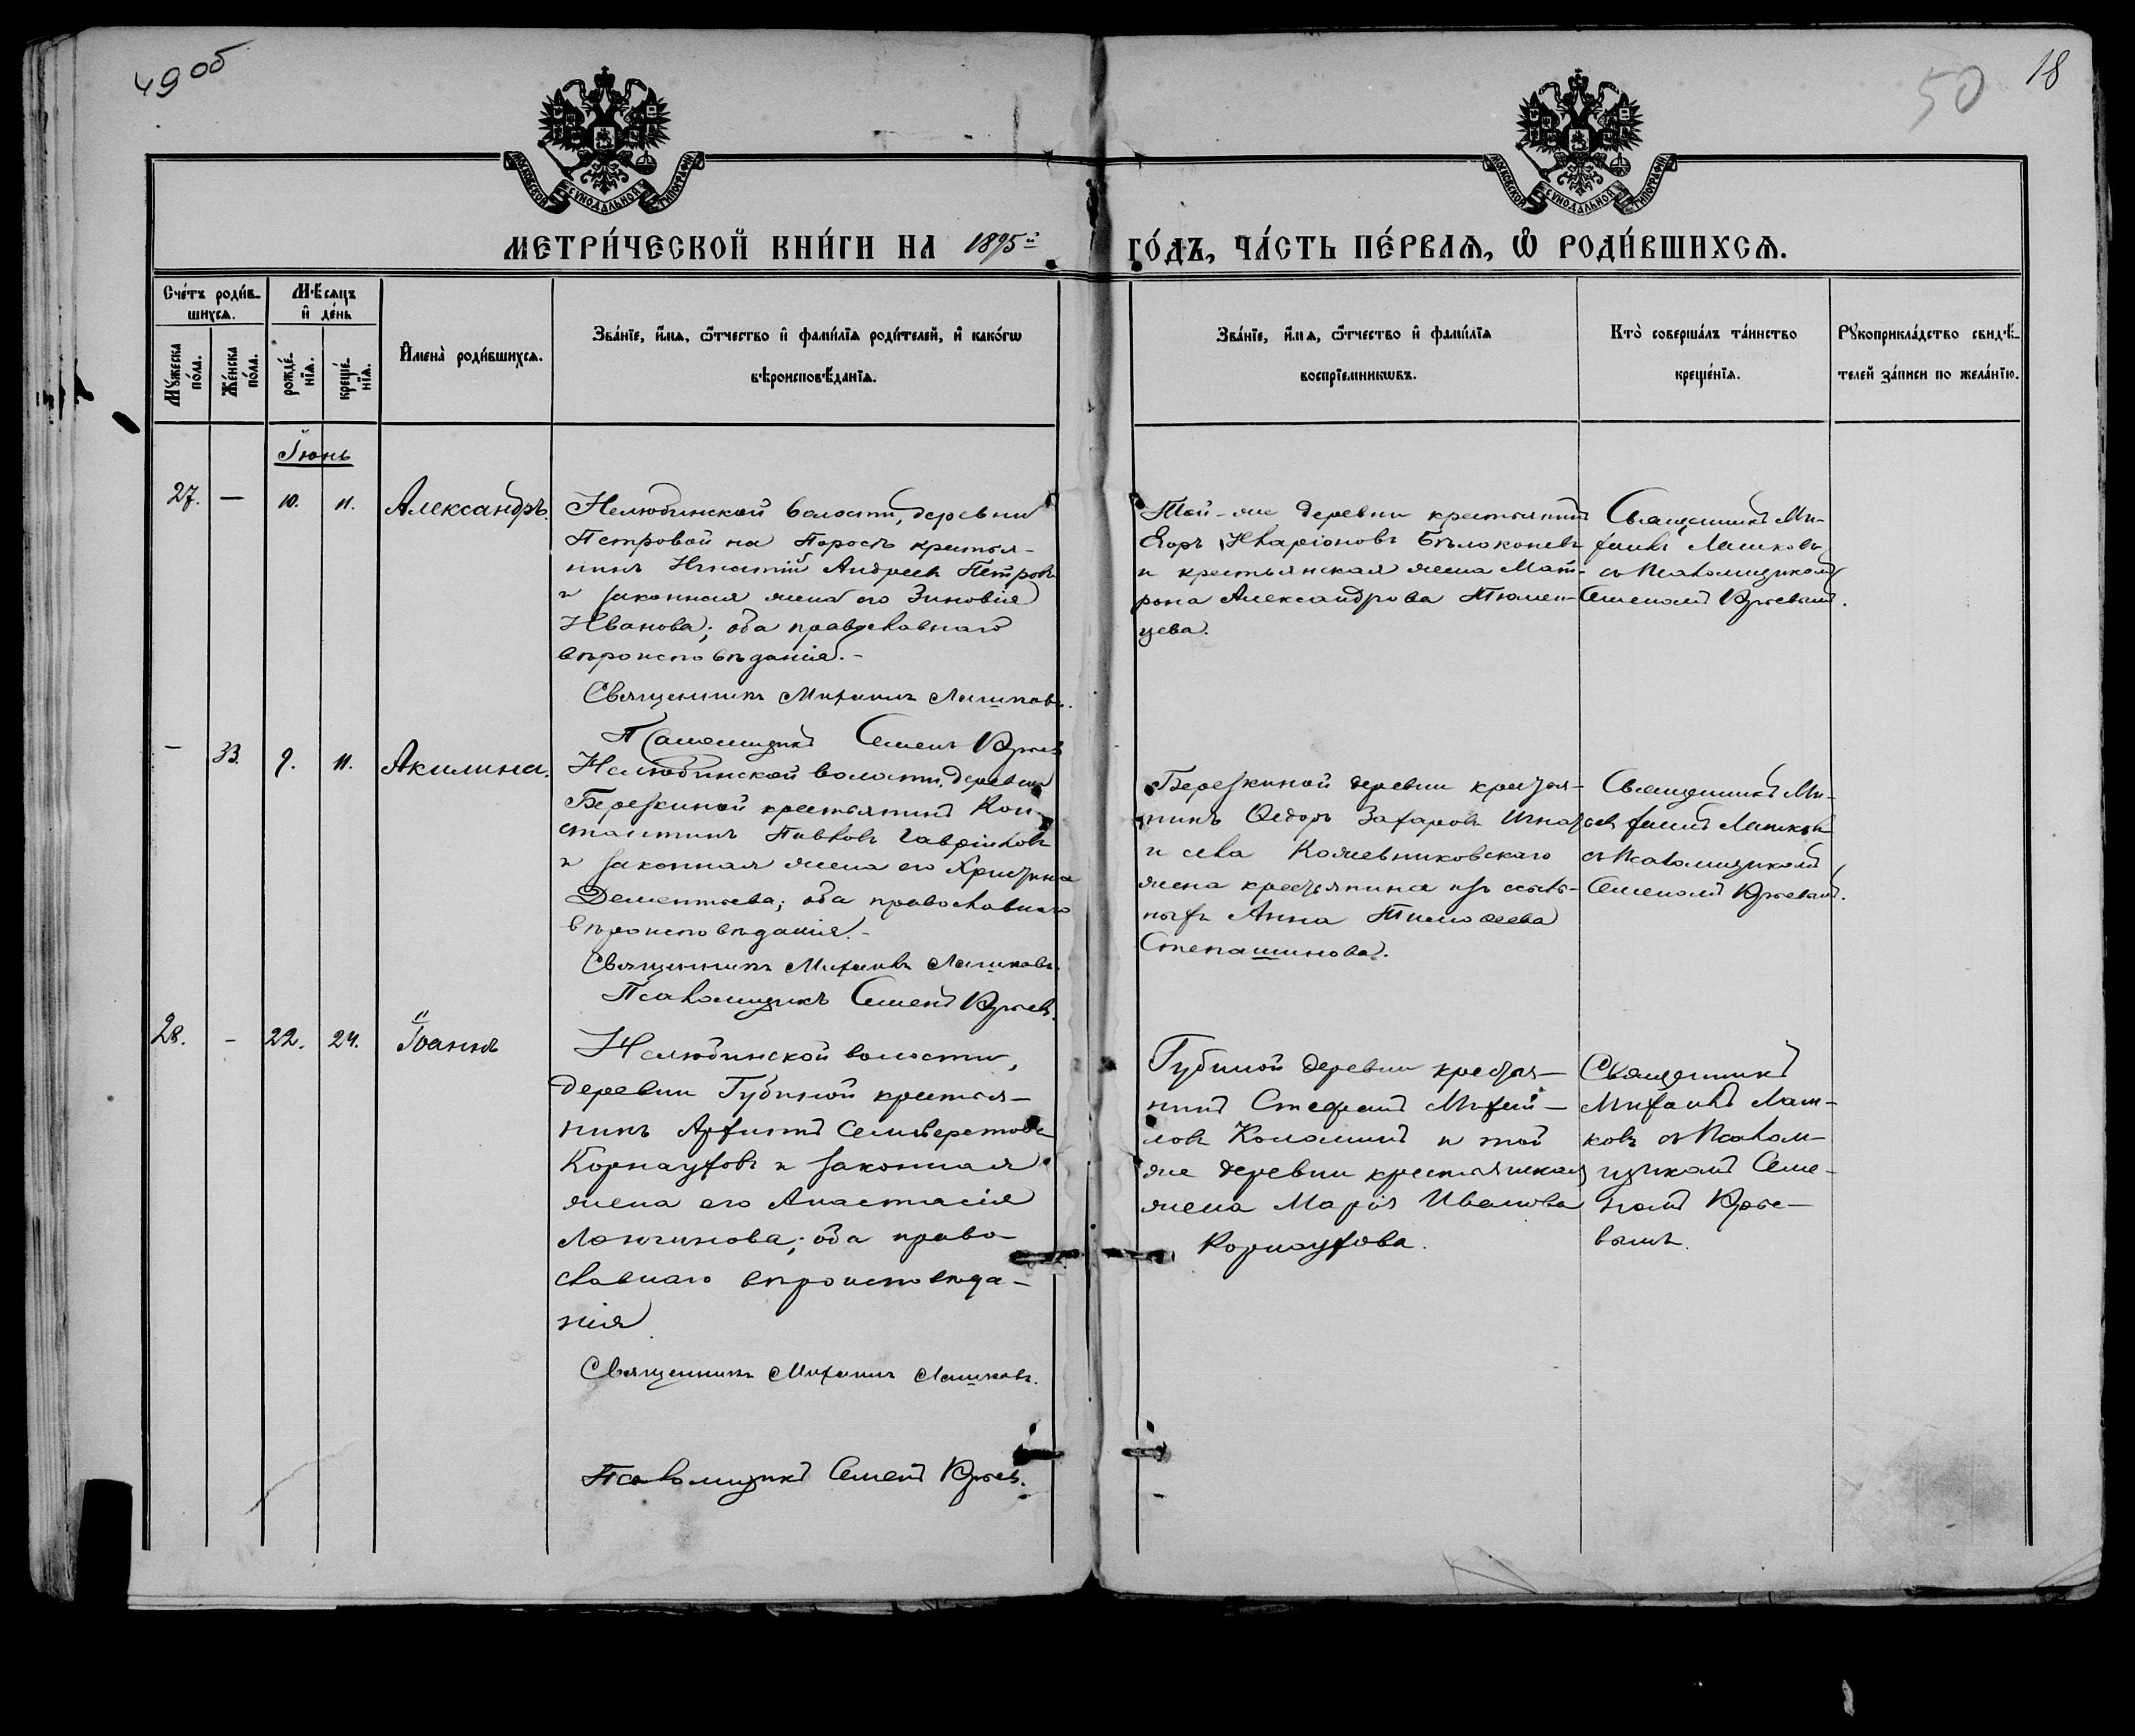 49 об
50
18
МОСКОВСКОЙ СУНОДАЛЬНОЙ ТИПОГРАФІИ
МОСКОВСКОЙ СУНОДАЛЬНОЙ ТИПОГРАФІИ
МЕТРИ́ЧЕСКОЙ КНИ́ГИ НА 1895й ГО́ДЪ, ЧА́СТЬ ПЕ́РВАѦ, Ѡ РОДИ́ВШИХСѦ.
Сче́тъ роди́в-
шихсѧ.
Мѣ́сѧцъ
и де́нь
Мꙋ́жеска
по́ла.
Же́нска
по́ла.
рожде́-
нїѧ.
креще́-
нїѧ.
Имена̀ роди́вшихсѧ.
Зва́нїе, и́мѧ, ѻ́тчество и фами́лїѧ роди́телей, и како́гѡ
вѣроисповѣ́данїѧ.
Зва́нїе, и́мѧ, ѻ́тчество и фами́лїѧ
воспрїе́мникѡвъ.
Кто̀ соверша́лъ та́инство
креще́нїѧ.
Рꙋкоприкла́дство свидѣ́-
телей за́писи по жела́нїю.
Іюнь
27. — 10. 11. Александръ.
Нелюбинской волости, деревни
Петровой на Поросѣ крестья-
нинъ Игнатій Андреевъ Петровъ
и законная жена его Зиновія
Иванова; оба православнаго
вѣроисповѣданія.-
Священникъ Михаилъ Лашковъ.
Псаломщикъ Семенъ Юрьевъ
Той-же деревни крестьянинъ
Егоръ Иларіоновъ Бѣлоконевъ
и крестьянская жена Мат-
рона Александрова Тюмен-
цева.
Священникъ Ми-
хаилъ Лашковъ
съ Псаломщикомъ
Семеномъ Юрьевымъ.
— 33. 9. 11. Акилина.
Нелюбинской волости, деревни
Березкиной крестьянинъ Кон-
стантинъ Павловъ Гавриловъ
и законная жена его Христина
Дементьева; оба православнаго
вѣроисповѣданія.-
Священникъ Михаилъ Лашковъ.
Псаломщикъ Семенъ Юрьевъ.
Березкиной деревни крестья-
нинъ Ѳедоръ Захаровъ Игнатьевъ
и села Кожевниковскаго
жена крестьянина изъ ссыль-
ныхъ Анна Тимоѳеева
Степашинова.
Священникъ Ми-
хаилъ Лашковъ
съ Псаломщикомъ
Семеномъ Юрьевымъ.
28. - 22. 24. Іоаннъ
Нелюбинской волости,
деревни Губиной крестья-
нинъ Архипъ Селиверстовъ
Корнауховъ и законная
жена его Анастасія
Лонгинова; оба право-
славнаго вѣроисповѣда-
нія
Священникъ Михаилъ Лашковъ.
Псаломщикъ Семенъ Юрьевъ.
Губиной деревни крестья-
нинъ Стефанъ Михай-
ловъ Коломинъ и той
же деревни крестьянская
жена Марія Иванова
Корнаухова.
Священникъ
Михаилъ Лаш-
ковъ съ Псалом-
щикомъ Семе-
номъ Юрье-
вымъ.